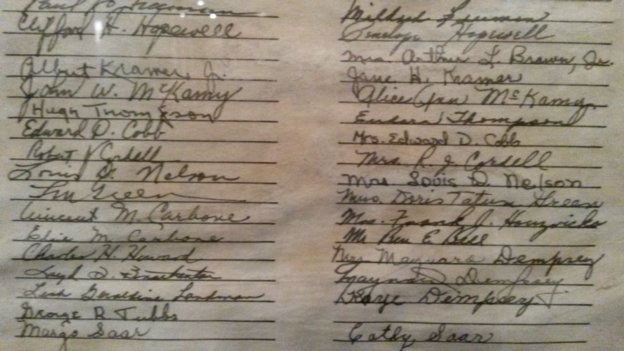 Clifford H. Hopewell
Albert Kramer Jr.
John W. McKamy
Hugh Thompson
Edward D. Cobb
Robert J Cordell
Louis D. Nelson
Tom Green
Vincent M. Carbone
Elsie M. Carbone
Charles H. Howard
George R Tubbs
Margo Saar
Mildred Freeman
Penelope Hopewell
Mrs. Arthur L. Brown, Jr.
Jane H. Kramer
Alice Ann McKamy
Thompson
Mrs. Edward D. Cobb
Mrs. R J Cordell
Mrs Louis D Nelson
Mrs. Doris Tatum Green
Mrs. Frank J.
E Bell
Mrs Maynard Dempsey
Maynard Dempsey
Dempsey
Cathy Saar